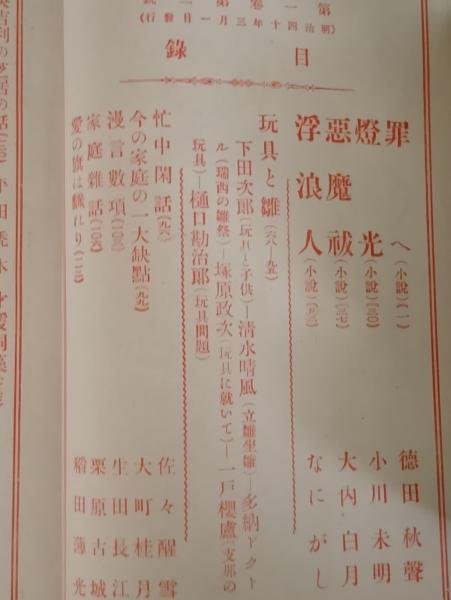 第一卷第二號
(明治四十年三月一日發行)
目錄
罪へ(小說)(一) 德田秋聲
燈光(小說)(三〇) 小川未明
惡魔祓(小說)(三七) 大內白月
浮浪人(小說) なにがし
玩具と雛
下田次郞(玩具と子供)―淸水晴風(立雛坐雛)―多納ドクト
ル(瑞西の雛祭)―塚原政次(玩具に就いて)―一戶櫻盧(支那の
玩具)―樋口勘治郞(玩具問題)
忙中閑話 佐々醒雪
今の家庭の一大缺點(九九) 大町桂月
漫言數項 生田長江
家庭雜話 栗原古城
愛の旗は飜れり 稻田薄光
吉利の芝居の話 平田禿木